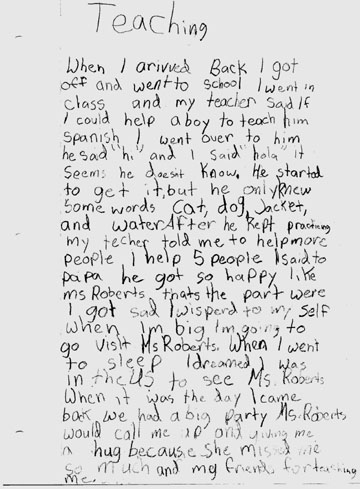 Teaching
When I arivved Back I got
off and went to school I went in
class and my teacher said If
I could help a boy to teach him
Spanish I went over to him
he said "hi" and I said "hola" it
seems he doesnt know. He started
to get it, but he only knew
some words Cat, dog, Jacket,
and water After he kept practicing
my techer told me to help more
people I help 5 people I said to
papa he got so happy like
ms Roberts, thats the part were
I got sad I wisperd to my self
when Im big Im going to
go visit Ms Roberts. When I went
to sleep I dreamed I was
in the US to see Ms. Roberts
When it was the day I came
bak we had a big party Ms. Roberts
would call me up and giving me
a hug because She missed me
so much and my friends for teaching
me.